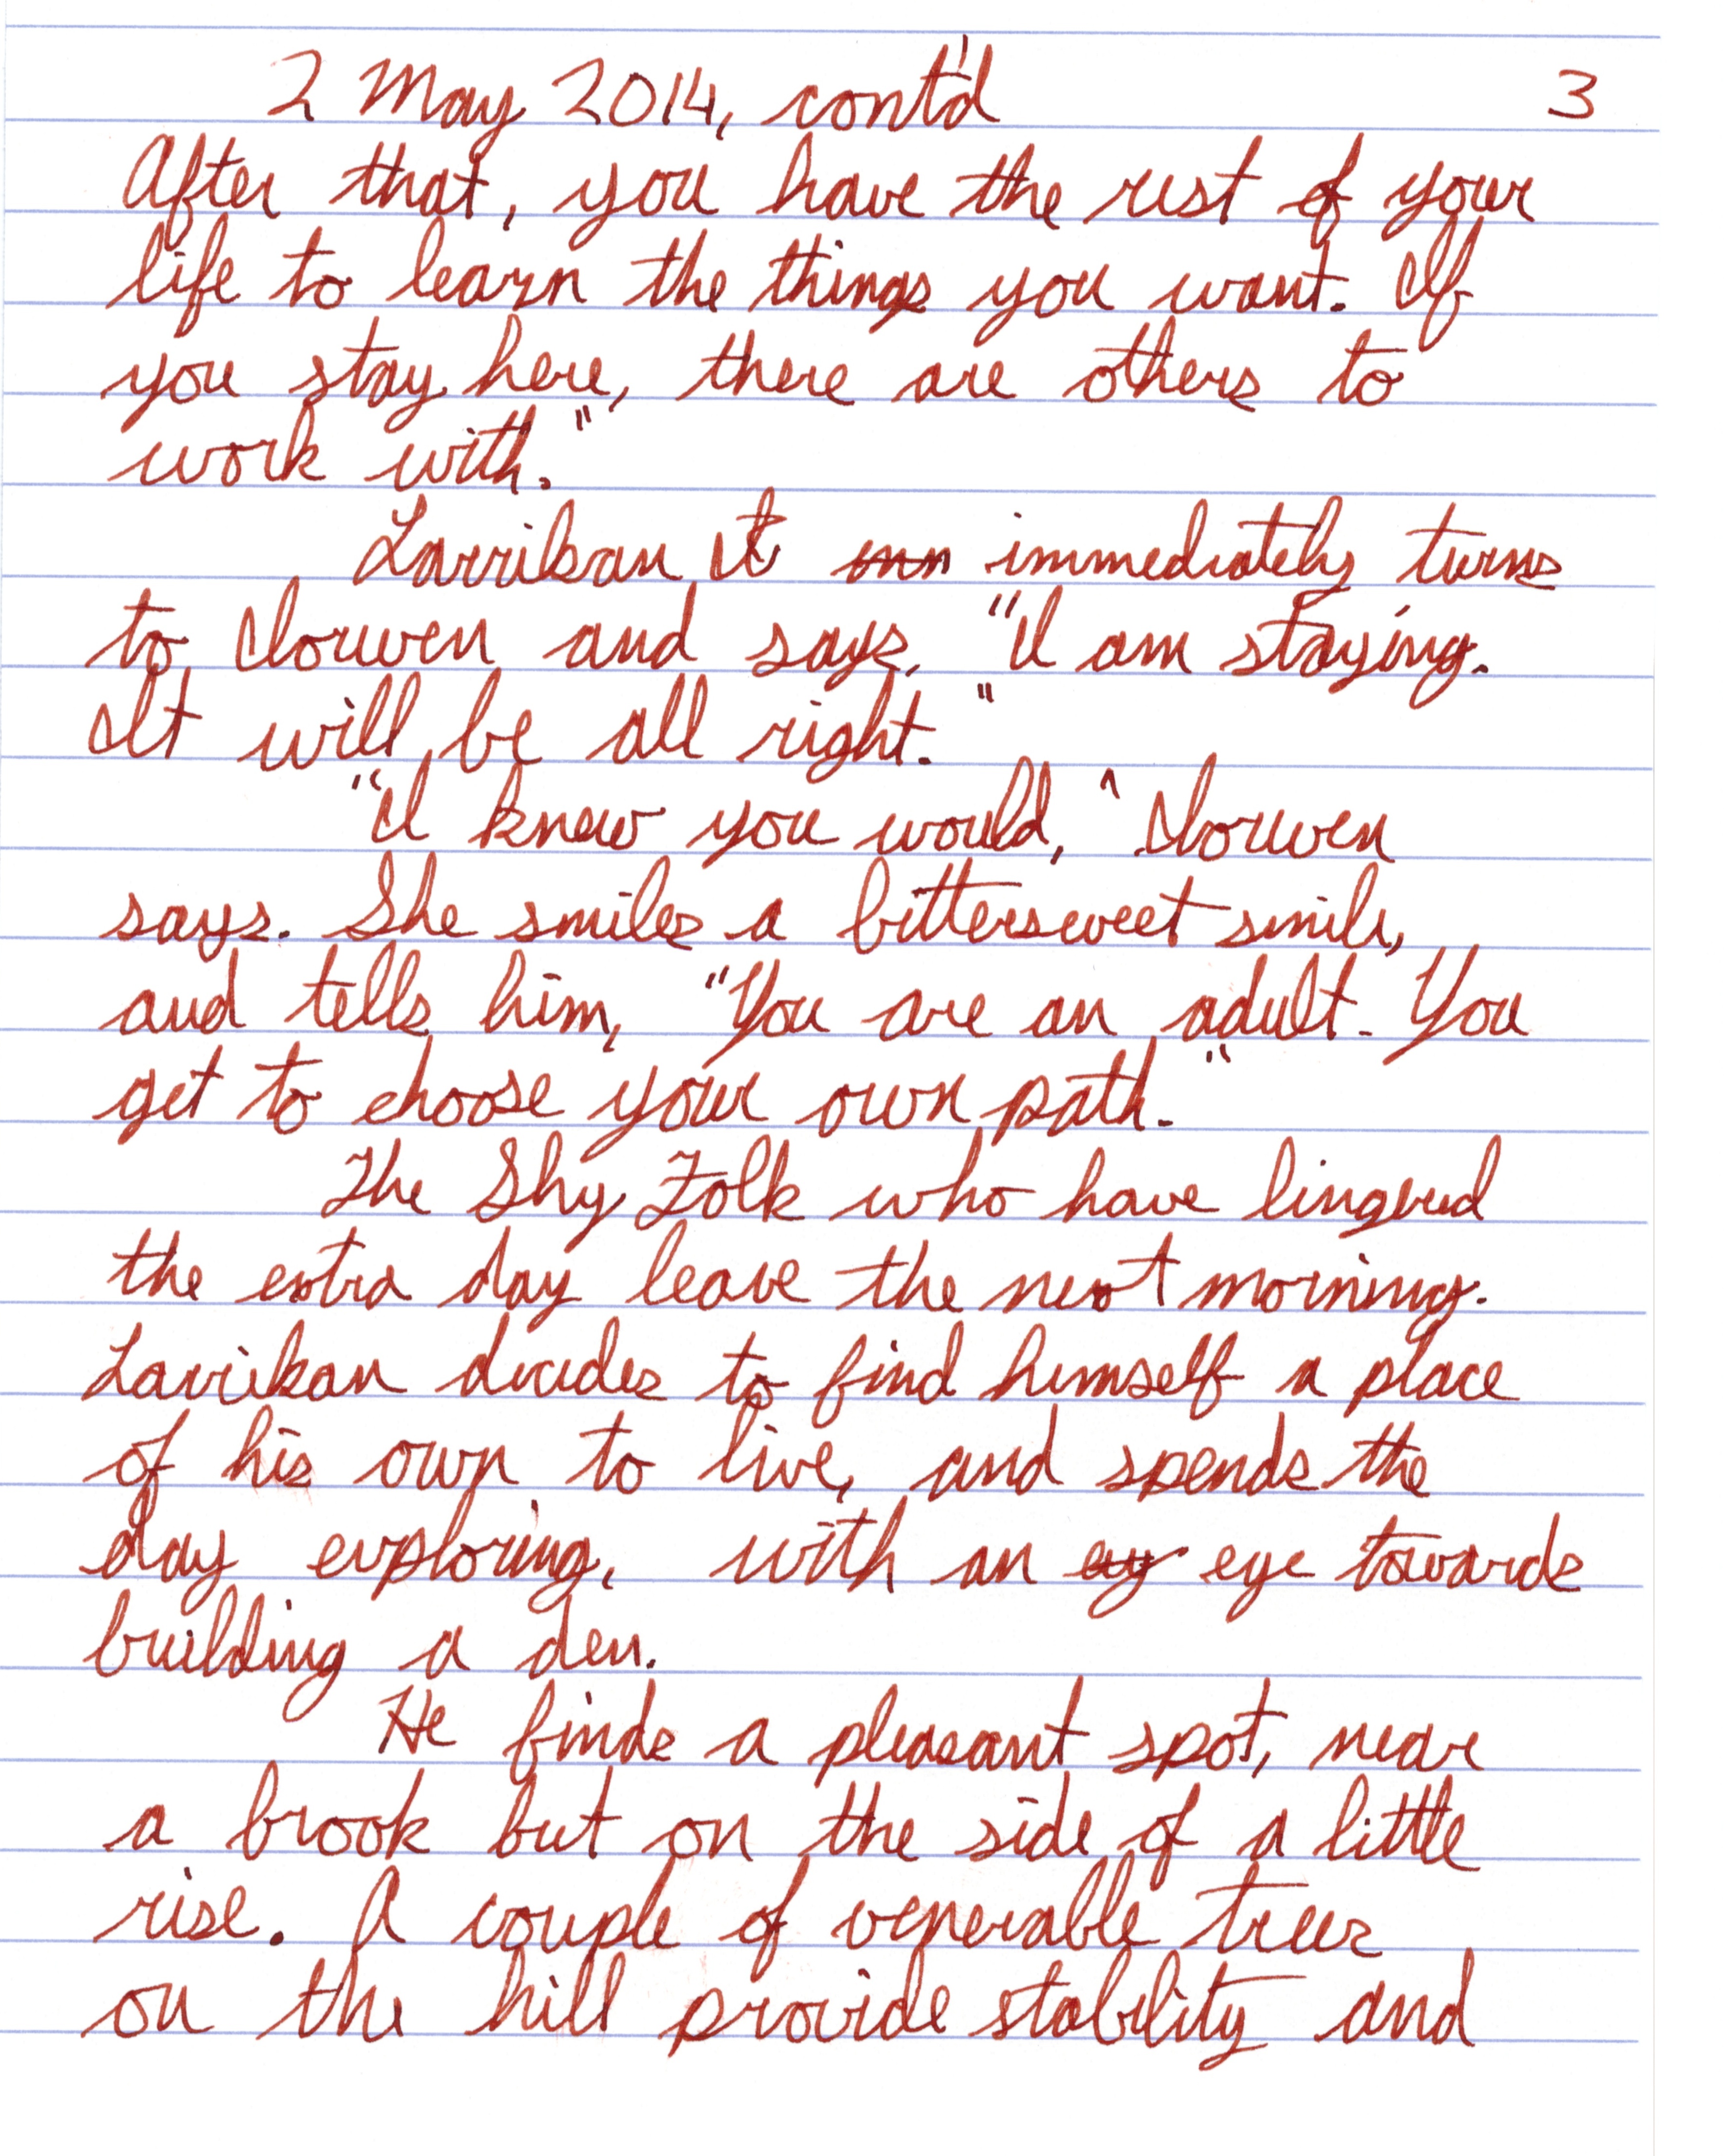 2 May 2014, cont'd 3
After that, you have the rest of your
life to learn the things you want. If
you stay here, there are others to
work with."
Larrikan immediately turns
to Iorwen and says, "I am staying.
It will be all right."
"I knew you would," Iorwen
says. She smiles a bittersweet smile,
and tells him, "You are an adult. You
get to choose your own path."
The Shy Folk who have lingered
the extra day leave the next morning.
Larrikan decides to find himself a place
of his own to live, and spends the
day exploring, with an ey eye towards
building a den.
He finds a pleasant spot, near
a brook but on the side of a little
rise. A couple of venerable trees
on the hill provide stability and